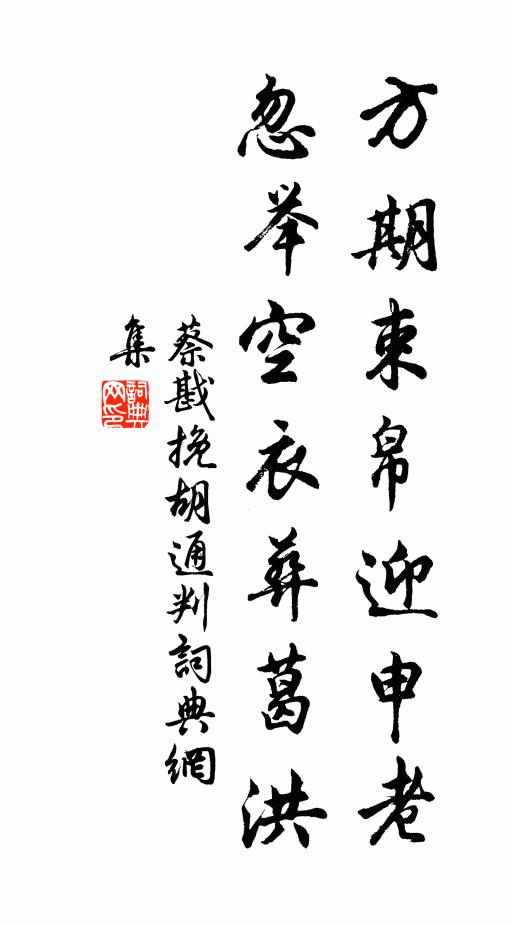 方期束帛迎申老
忽举空衣葬葛洪
蔡戡挽胡通判詞典網
集
詞典網印